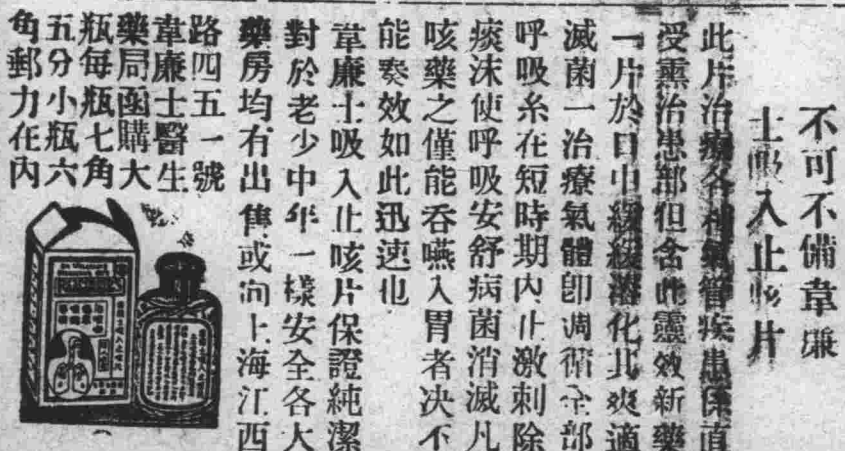 不可不備韋廉
士吸入止咳片
此片治療各種氣管疾患係直
受薰治患部但含此靈效新藥
一片於口中緩緩溶化其爽適
滅菌一治療氣體卽週循全部
呼吸系在短時期內止激刺除
痰沫使呼吸安舒病菌消滅凡
咳藥之僅能吞嚥入胃者决不
能奏效如此迅速也
韋廉士吸入止咳片保證純潔
對於老少中年一樣安全各大
藥房均有出售或向上海江西
路四五一號
韋廉士醫生
藥局函購大
瓶每瓶七角
五分小瓶六
角郵力在內